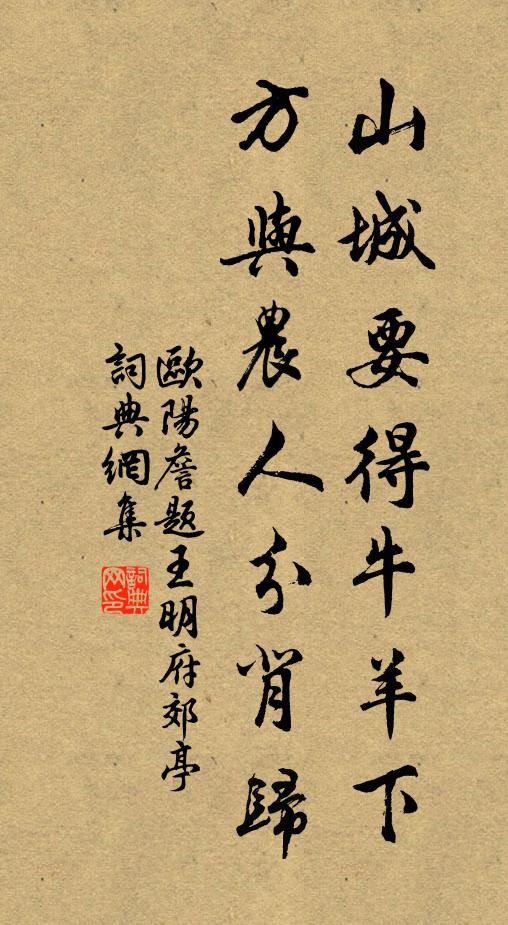 山城要得牛羊下
方與農人分背歸
歐陽詹題王明府郊亭
詞典網集
詞典网印